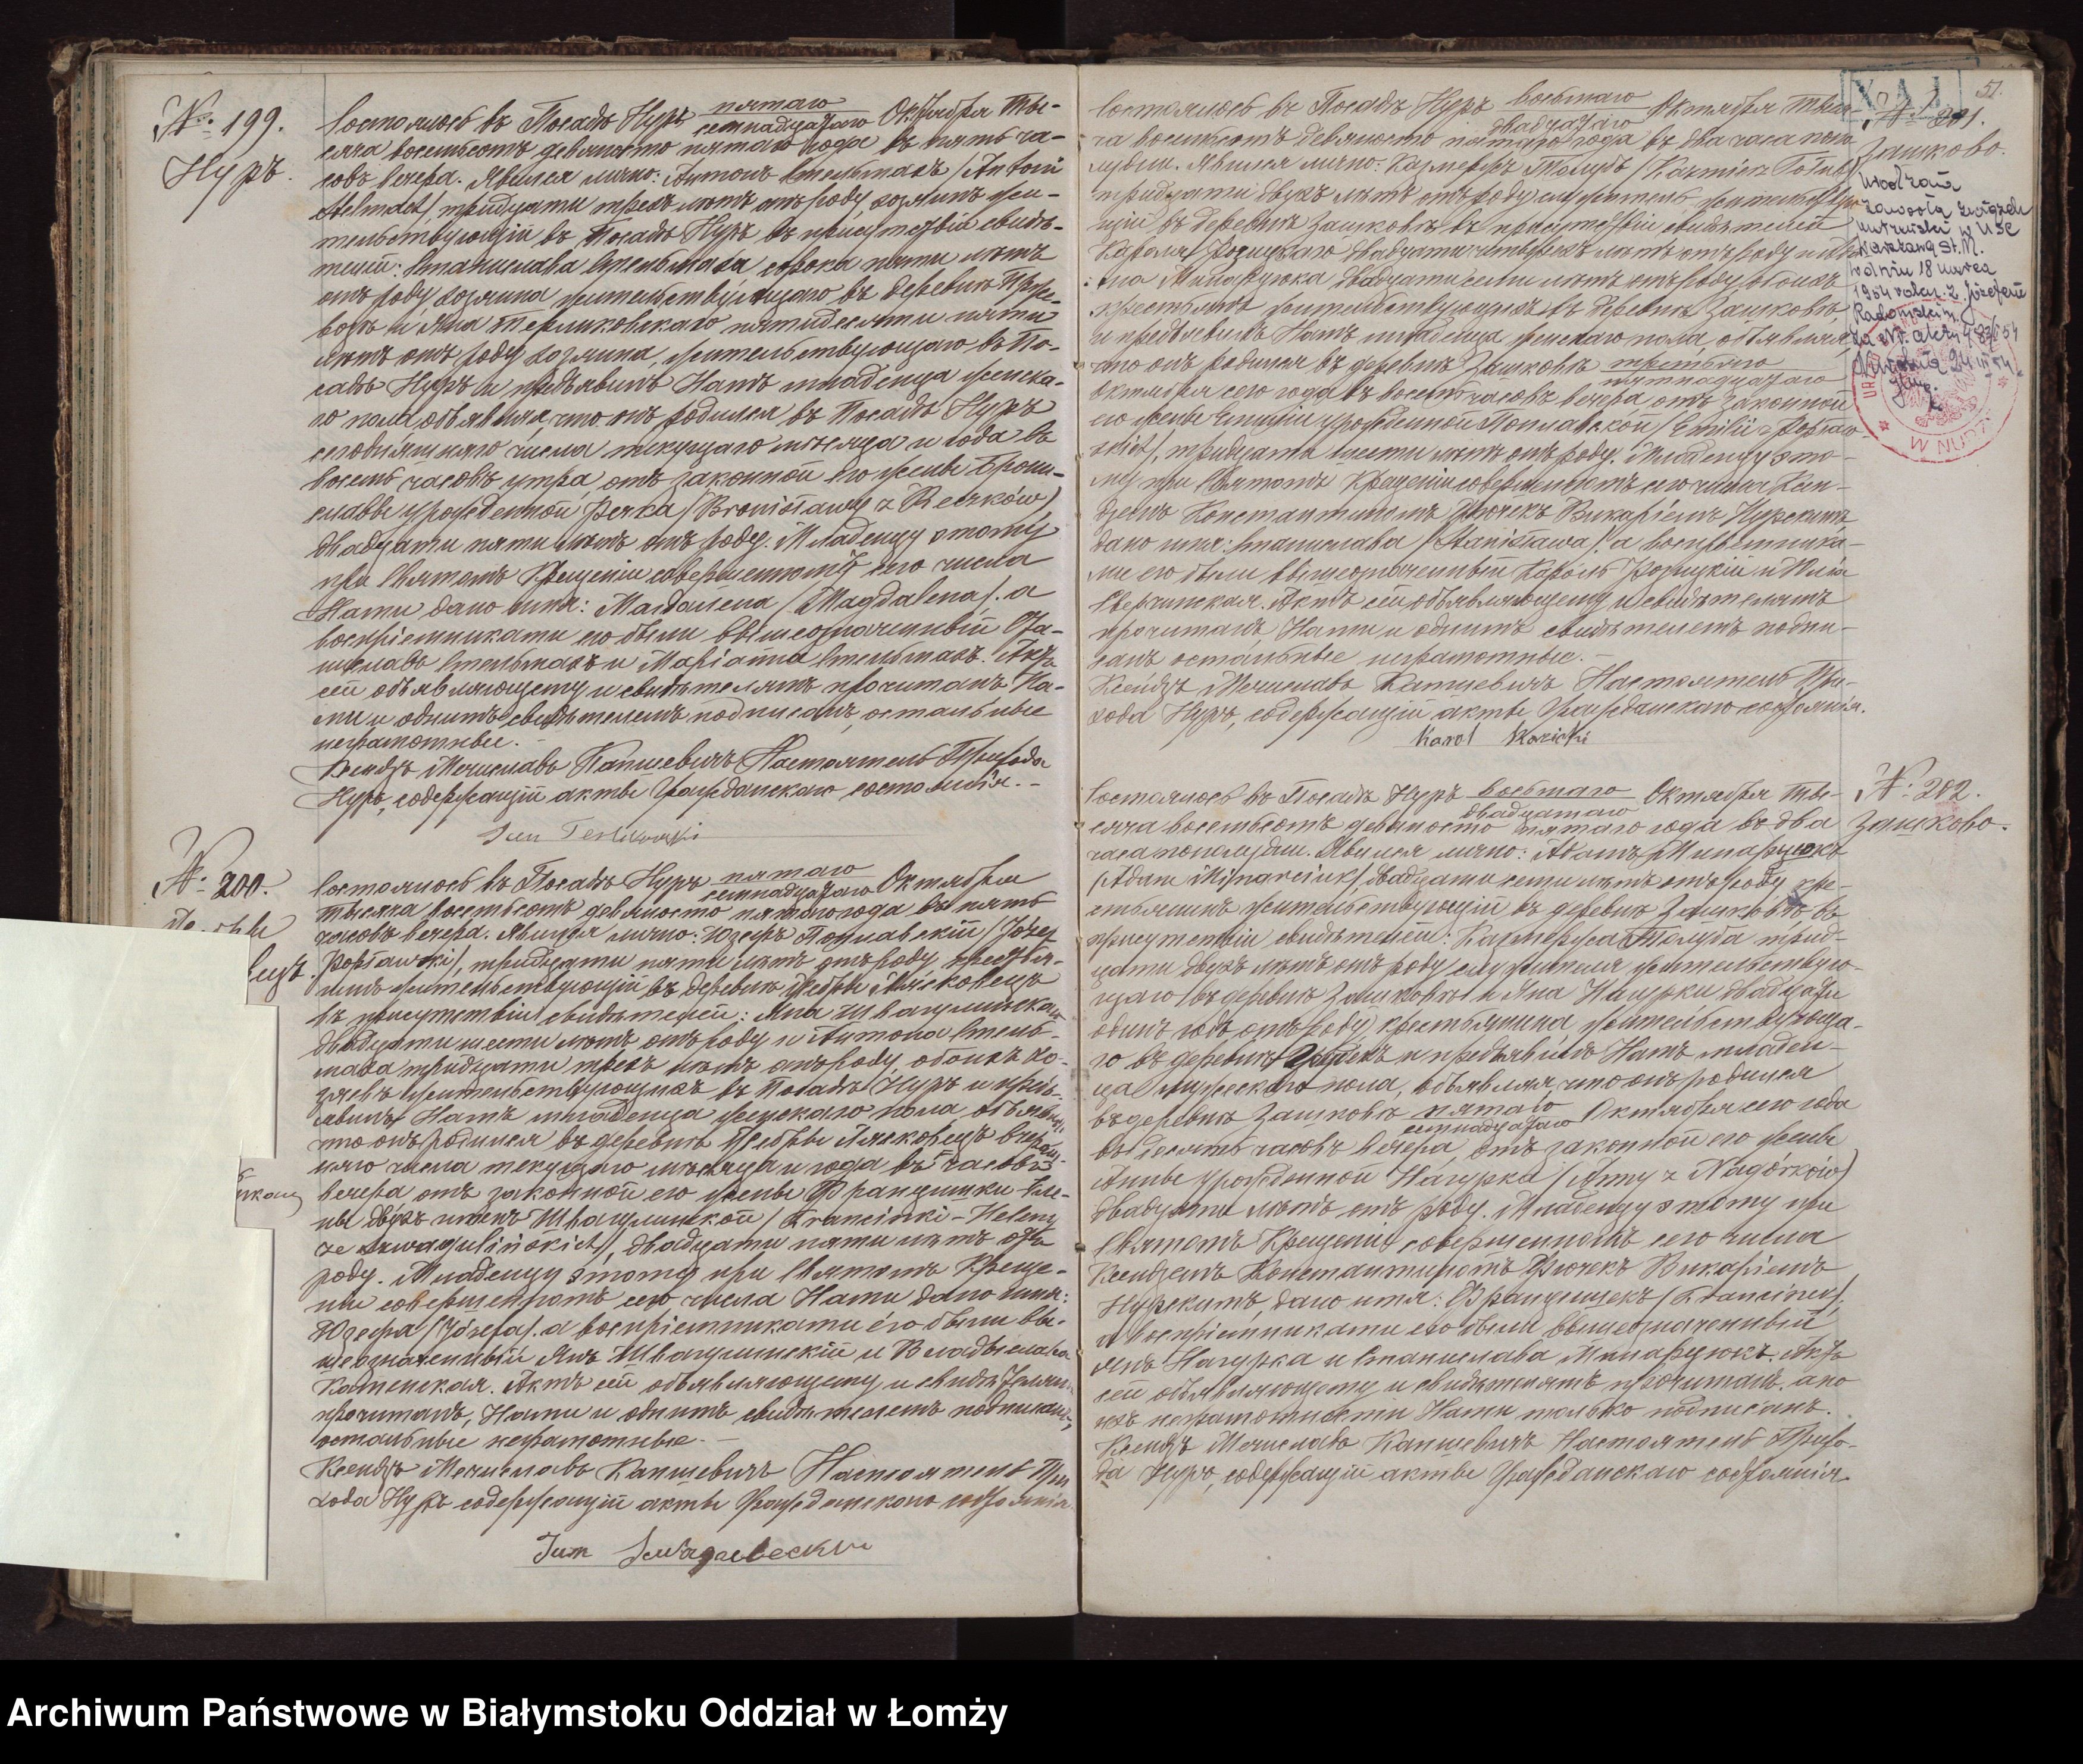 № 199.
Нуръ.
Состоялось въ Посадѣ Нуръ пятаго / семнадцатаго Октября Ты-
сяча восемьсотъ девяносто пятаго года въ пять ча-
совъ вечера. Явился лично: Антонъ Стельмахъ /Antoni
Stelmach/, тридцати трехъ лѣтъ отъ роду, хозяинъ жи-
тельствующій въ Посадѣ Нуръ въ присутствіи свидѣ-
телей: Станислава Стельмаха сорока пяти лѣтъ
отъ роду хозяина жительствующаго въ деревнѣ
и Яна Терликовскаго пятидесяти пяти
лѣтъ отъ роду хозяина, жительствующаго въ По-
садѣ Нуръ и предъявилъ Намъ младенца женска-
го пола, объявляя, что онъ родился въ Посадѣ Нуръ
сегодняшняго числа текущаго мѣсяца и года въ
восемь часовъ утра, отъ законной его жены Брони-
славы урожденной Речка /Bronisławy z Reczków/
двадцати пяти лѣтъ отъ роду. Младенцу этому
при Святомъ Крещеніи совершенномъ сего числа
Нами дано имя: Магдалена /Magdalena/. а
воспріемниками его были вышеозначенный Ста-
ниславъ Стельмахъ и Маріанна Стельмахъ. Актъ
сей объявляющему и свидѣтелямъ прочитанъ На-
ми и однимъ свидѣтелемъ подписанъ, остальные
неграмотные.
Ксендзъ Мечиславъ Капшевичъ Настоятель Прихода
Нуръ, содержащій акты Гражданскаго состоянія.
Jan Terlikowski
№ 200.
Состоялось въ Посадѣ Нуръ пятаго / семнадцатаго Октября
тысяча восемьсотъ девяносто пятаго года въ пять
часовъ вечера. Явился лично: Юзефъ Поплавскій /Józef
Popławski/, тридцати пяти лѣтъ отъ роду крестья-
нинъ жительствующій въ деревнѣ
въ присутствіи свидѣтелей: Яна Швагулинскаго
двадцати шести лѣтъ отъ роду и Антона Стель-
маха тридцати трехъ лѣтъ отъ роду, обоихъ хо-
зяевъ жительствующихъ въ Посадѣ Нуръ и предъ-
явилъ Намъ младенца женскаго пола, объявляя,
что онъ родился въ деревнѣ вчераш-
няго числа текущаго мѣсяца и года въ часовъ
вечера отъ законной его жены Францишки Еле-
ны двухъ именъ Швагулинской /Francişki-Heleny
ze Szwagulińskich/, двадцати пяти лѣтъ отъ
роду. Младенцу этому при Святомъ Креще-
ніи совершенномъ сего числа Нами дано имя:
Юзефа /Józefa/. а воспріемниками его были вы-
шеозначенный Янъ Швагулинскій и Владыслава
Каменская. Актъ сей объявляющему и свидѣтелямъ
прочитанъ, Нами и однимъ свидѣтелемъ подписанъ,
остальные неграмотные.
Ксендзъ Мечиславъ Капшевичъ Настоятель При-
хода Нуръ содержащій акты Гражданскаго состоянія.
51.
201.
Зашково.
Состоялось въ Посадѣ Нуръ восьмаго / двадцатаго Октября тыся-
ча восемьсотъ девяносто пятаго года въ два часа попо-
лудни. Явился лично: Казмержъ Толуда /
тридцати двухъ лѣтъ отъ роду служитель жительствую-
щій въ деревнѣ Зашковѣ въ присутствіи свидѣтелей
Кароля Розицкаго двадцати четырехъ лѣтъ отъ роду и
Минарчука двадцати семи лѣтъ отъ роду обоихъ
крестьянъ жительствующихъ въ деревнѣ Зашковѣ
и предъявилъ Намъ младенца женскаго пола, объявляя,
что онъ родился въ деревнѣ Зашковѣ третьяго / пятнадцатаго
Октября сего года въ восемь часовъ вечера отъ законной
его жены Емиліи урожденной Поплавской /Emilii z Popław-
skich/, тридцати шести лѣтъ отъ роду. Младенцу это-
му при Святомъ Крещеніи совершенномъ сего числа Ксен-
дземъ Константиномъ Викаріемъ Нурскимъ
дано имя: Станислава /Stanisława/. а воспріемника-
ми его были вышеозначенный Кароль Розицкій и Юлія
Сверчинская. Актъ сей объявляющему и свидѣтелямъ
прочитанъ, Нами и однимъ свидѣтелемъ подпи-
санъ остальные неграмотные.
Ксендзъ Мечиславъ Капшевичъ Настоятель При-
хода Нуръ, содержащій акты Гражданскаго состоянія.
Karol Rozicki
zawarła związek
małżeński w USC
Warszawa St. M.
w dniu 18 marca
1954 roku z Józefem
Radomskim
W NURZE
№ 202.
Зашково.
Состоялось въ Посадѣ Нуръ восьмаго / двадцатаго Октября ты-
сяча восемьсотъ девяносто пятаго года въ два
часа пополудни. Явился лично: Адамъ Минарчукъ
/Adam Minarciuk/, двадцати семи лѣтъ отъ роду кре-
стьянинъ жительствующій въ деревнѣ Зашковѣ въ
присутствіи свидѣтелей: Казмержа Толуда трид-
цати двухъ лѣтъ отъ роду служителя жительствую-
щаго въ деревнѣ Зашковѣ и Яна Нагурки двадцати
одинъ годъ отъ роду, крестьянина жительствующа-
го въ деревнѣ и предъявилъ Намъ младен-
ца мужескаго пола, объявляя, что онъ родился
въ деревнѣ Зашковѣ пятаго / семнадцатаго Октября сего года
въ часовъ вечера, отъ законной его жены
Анны урожденной Нагурка /Anny z Nagórków/
двадцати лѣтъ отъ роду. Младенцу этому при
Святомъ Крещеніи совершенномъ сего числа
Ксендземъ Константиномъ Викаріемъ
Нурскимъ, дано имя: Францишекъ /
а воспріемниками его были вышеозначенный
Янъ Нагурка и Станислава Минарчукъ. Актъ
сей объявляющему и свидѣтелямъ прочитанъ, а по
ихъ неграмотности Нами только подписанъ.
Ксендзъ Мечиславъ Капшевичъ Настоятель Прихо-
да Нуръ, содержащій акты Гражданскаго состоянія.
Archiwum Państwowe w Białymstoku Oddział w Łomży